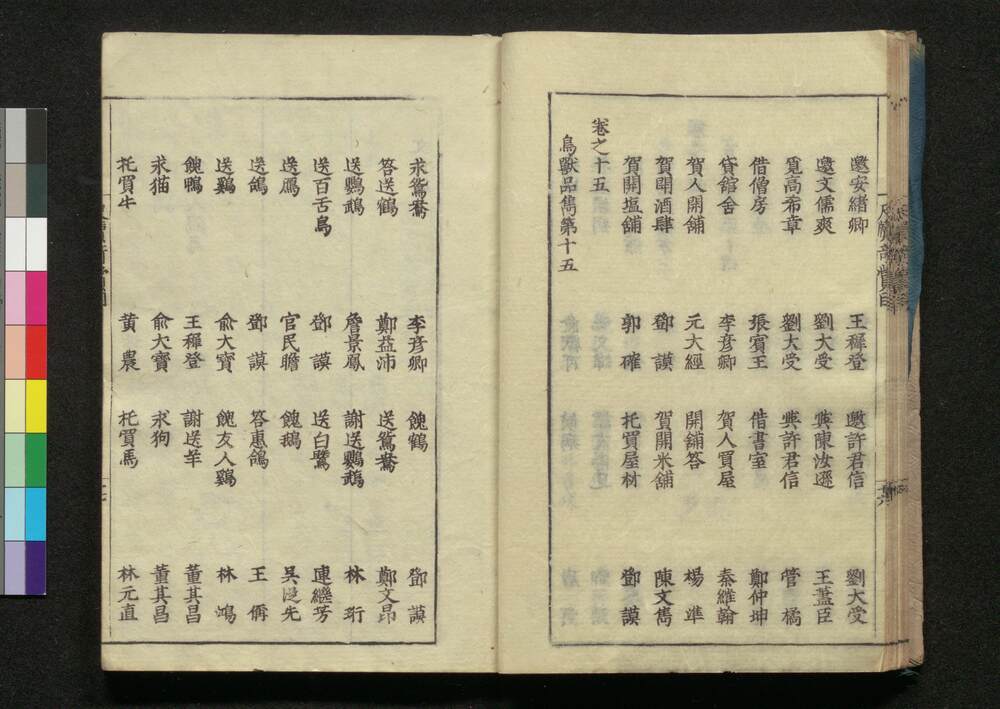 邀安緒卿　王穉登　邀許君信　劉大受
邀文儒爽　劉大受　與陳汝遜　王藎臣
覓高布章　劉大受　與許君信　管橘
借僧房　張賓王　借書室　鄭仲坤
貸舘舍　李彥卿　賀人買屋　秦維翰
賀人開舖　元大經　開舖答　楊準
賀開酒肆　鄧謨　賀開米舖　陳文雋
賀開塩舖　郭確　托買屋材　鄧謨
卷之十五
鳥獸品雋第十五
求鴛鴦　李彥卿　餽鶴　鄧謨
答送鶴　鄭益沛　送鴛鴦　鄭文昂
送鸚鵡　詹景鳳　謝送鸚鵡　林珩
送百舌鳥　鄧謨　送白鷺　連繼芳
送鴈　官民瞻　餽鵝　吳從先
送鴿　鄧謨　答惠鴿　王偁
送鷄　俞大寶　餽友人鷄　林鴻
餽鴨　王穉登　謝送羊　董其昌
求猫　俞大寶　求狗　董其昌
托買牛　黃農　托買馬　林元直